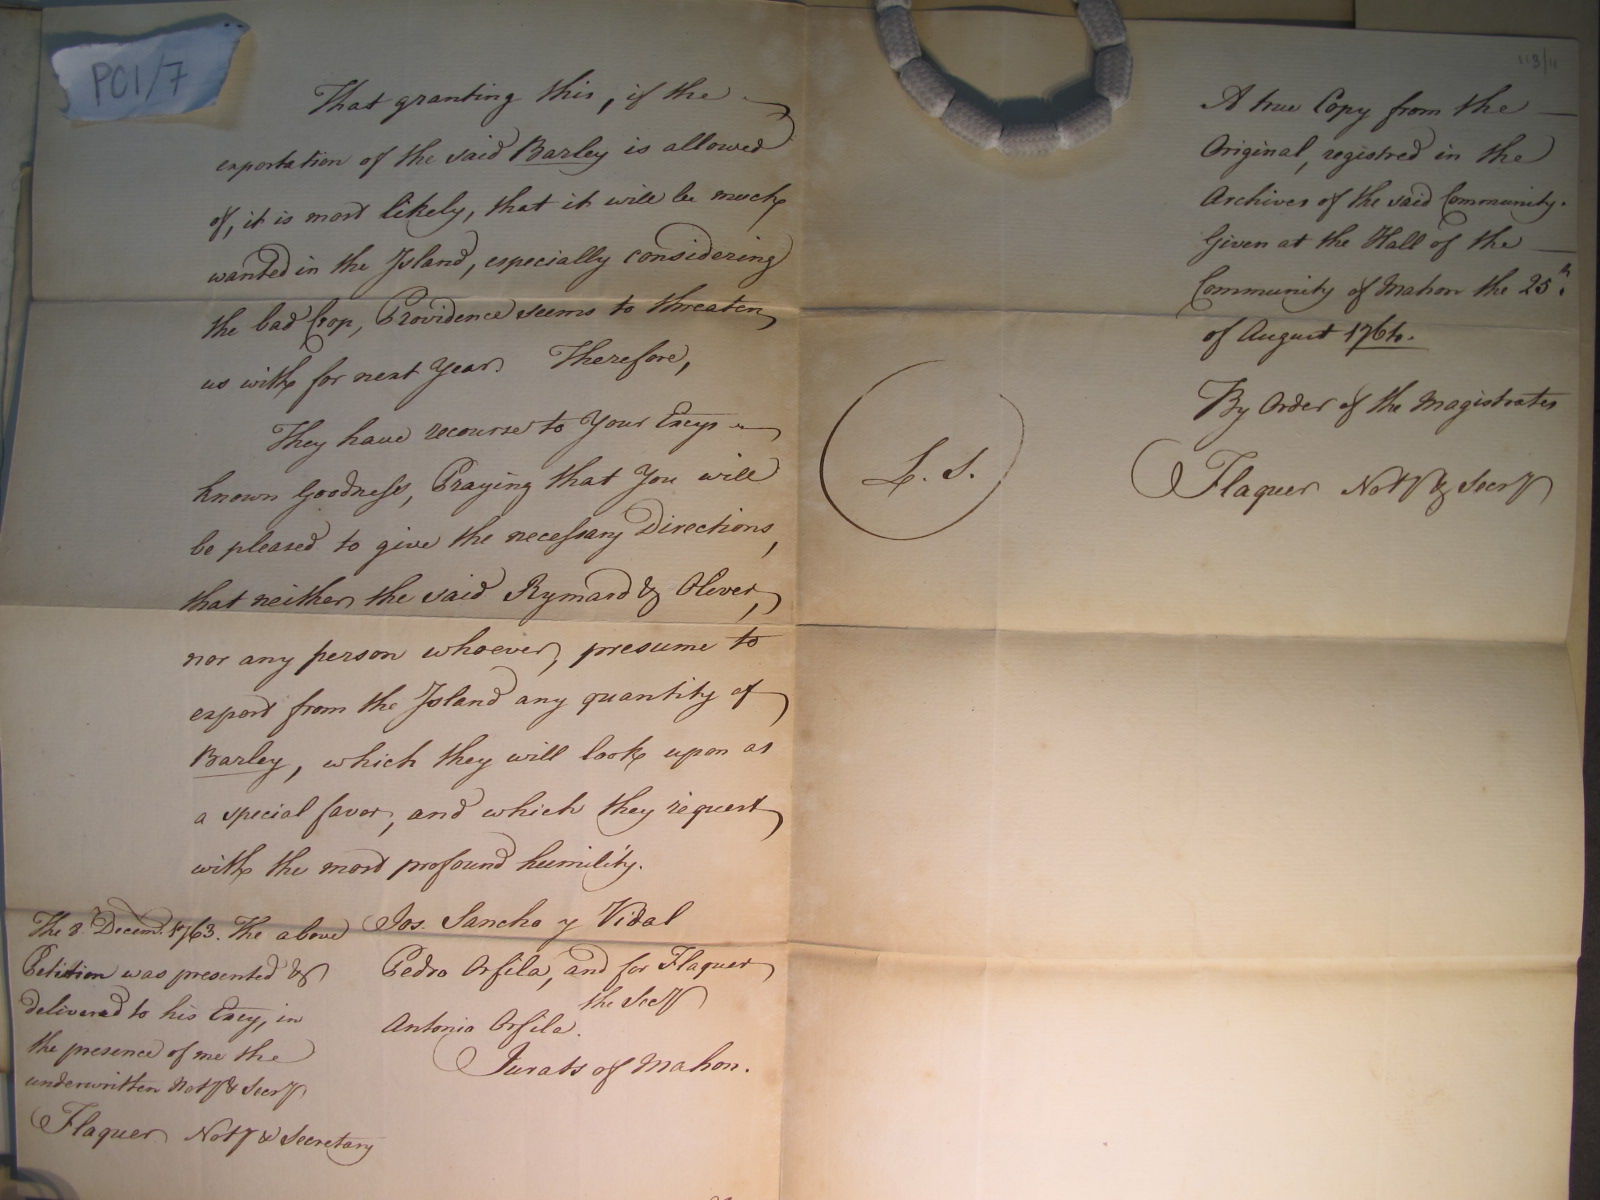 PC1/7
That granting this, if the
exportation of the said Barley is allowed
of, it is most likely, that it will be much
wanted in the Island, especially considering
the bad Crop, Providence seems to threaten
us with for next Year. Therefore,
They have recourse to Your Excys
known Goodness, Praying that You will
be pleased to give the necessary Directions,
that neither the said Rymard & Oliver,
nor any person whoever, presume to
export from the Island any quantity of
Barley, which they will look upon as
a special favor, and which they request
with the most profound humility.
Jos. Sancho y Vidal
Pedro Orfila, and for Flaquer
the Secry
Antonio Orfila.
Jurats of Mahon.
The 8 Decem. 1763. The above
Petition was presented &
delivered to his Excy, in
the presence of me the
underwritten Noty & Secry
Flaquer Noty & Secretary
L. S.
A true Copy from the
Original, registred in the
Archives of the said Community.
Given at the Hall of the
Community of Mahon the 25th.
of August 1764.
By Order of the Magistrates
Flaquer Noty & Secry